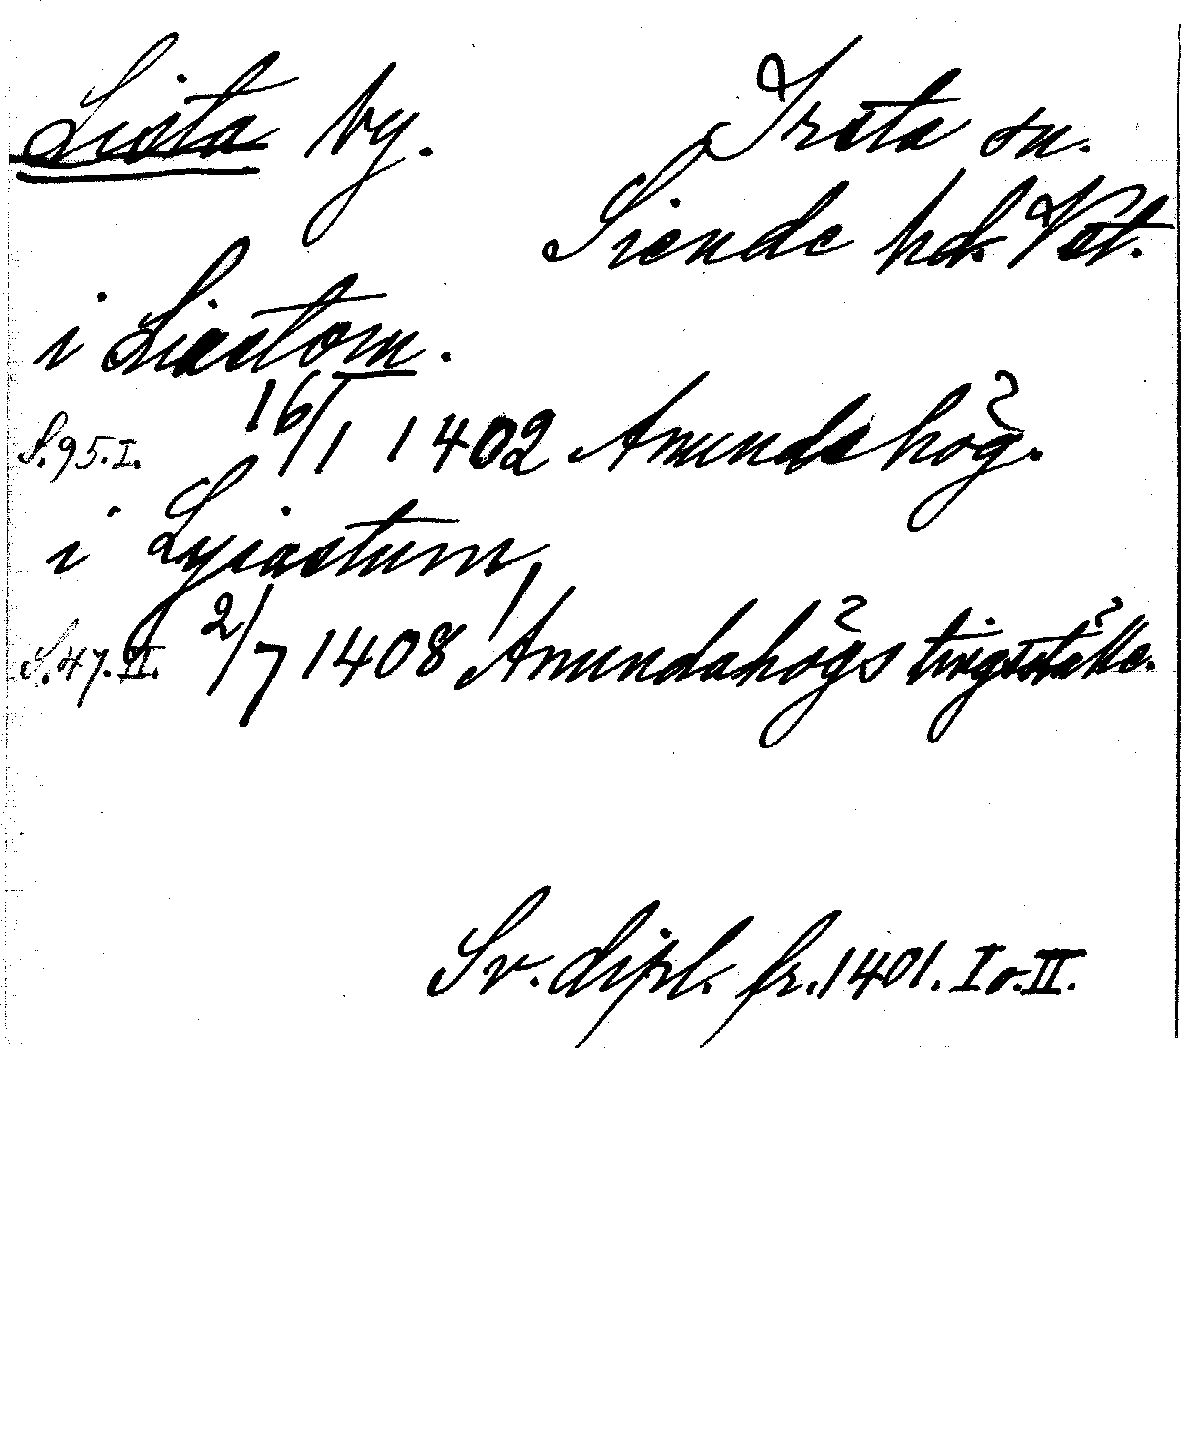 Lista by. Irsta sn.
Siende hd. Vst.
i Liastom.
S.95.I. 16/1 1402 Amundshög.
i Lysiastum,
S.47.II. 2/7 1408 Amundahögs tingställe.
Sv. dipl. fr. 1401. I o. II.